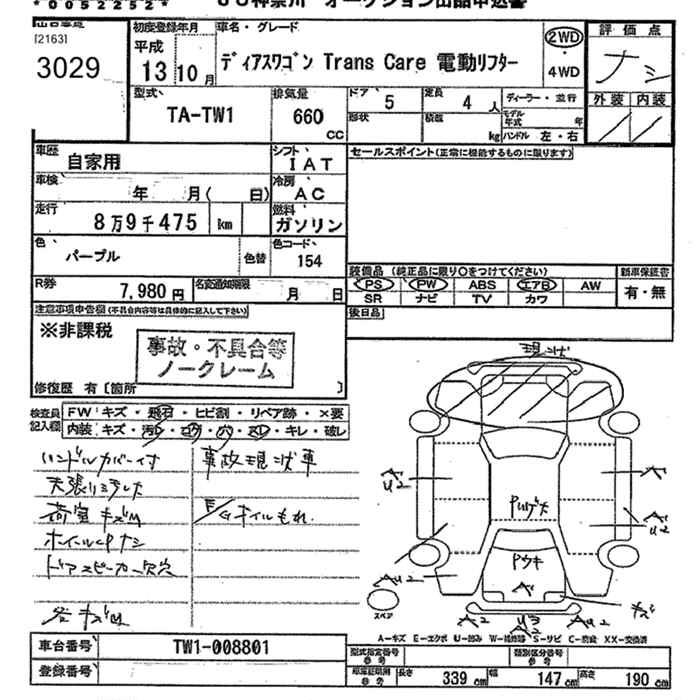 *0052252*
JU神奈川 オークション出品申込書
[2163]
3029
初度登録年月
平成
13年10月
車名・グレード
ディアスワゴン Trans Care 電動リフター
2WD
・
4WD
評価点
ナシ
外装 内装
型式
TA-TW1
排気量
660
CC
ドア 5
形状
定員 4人
積載 kg
ディーラー・並行
モデル年式 年
ハンドル 左・右
車歴
自家用
シフト
IAT
セールスポイント(正常に機能するものに限ります)
車検
年 月( 日)
冷房
AC
走行
8万9千475 km
燃料
ガソリン
色
パープル
色替
色コード
154
R券
7,980円
名変通知期限
月 日
装備品 (純正品に限り○をつけてください)
PS PW ABS エアB AW
SR ナビ TV カワ
新車保証書
有・無
後日品
注意事項申告欄(不具合内容等は具体的に記入して下さい)
※非課税
事故・不具合等
ノークレーム
修復歴 有〔箇所 〕
検査員
記入欄
FW キズ・飛石・ヒビ割・リペア跡・×要
内装 キズ・汚レ・コゲ・穴・スレ・キレ・破レ
ハンドルカバー付
事故現状車
天張りヨゴレ
荷室キズM
ホイールCPナシ
ドアスピーカー欠穴
各キズM
現状
A
U2
A
U2
Pウキ
A
U2
A2
U3
A2
A
U2
キズ
スペア
A-キズ E-エクボ U-凹み W-補修跡 S-サビ C-腐食 XX-交換済
車台番号
TW1-008801
登録番号
型式指定番号
参考
類別区分番号
参考
長さ 339 cm
幅 147 cm
高さ 190 cm